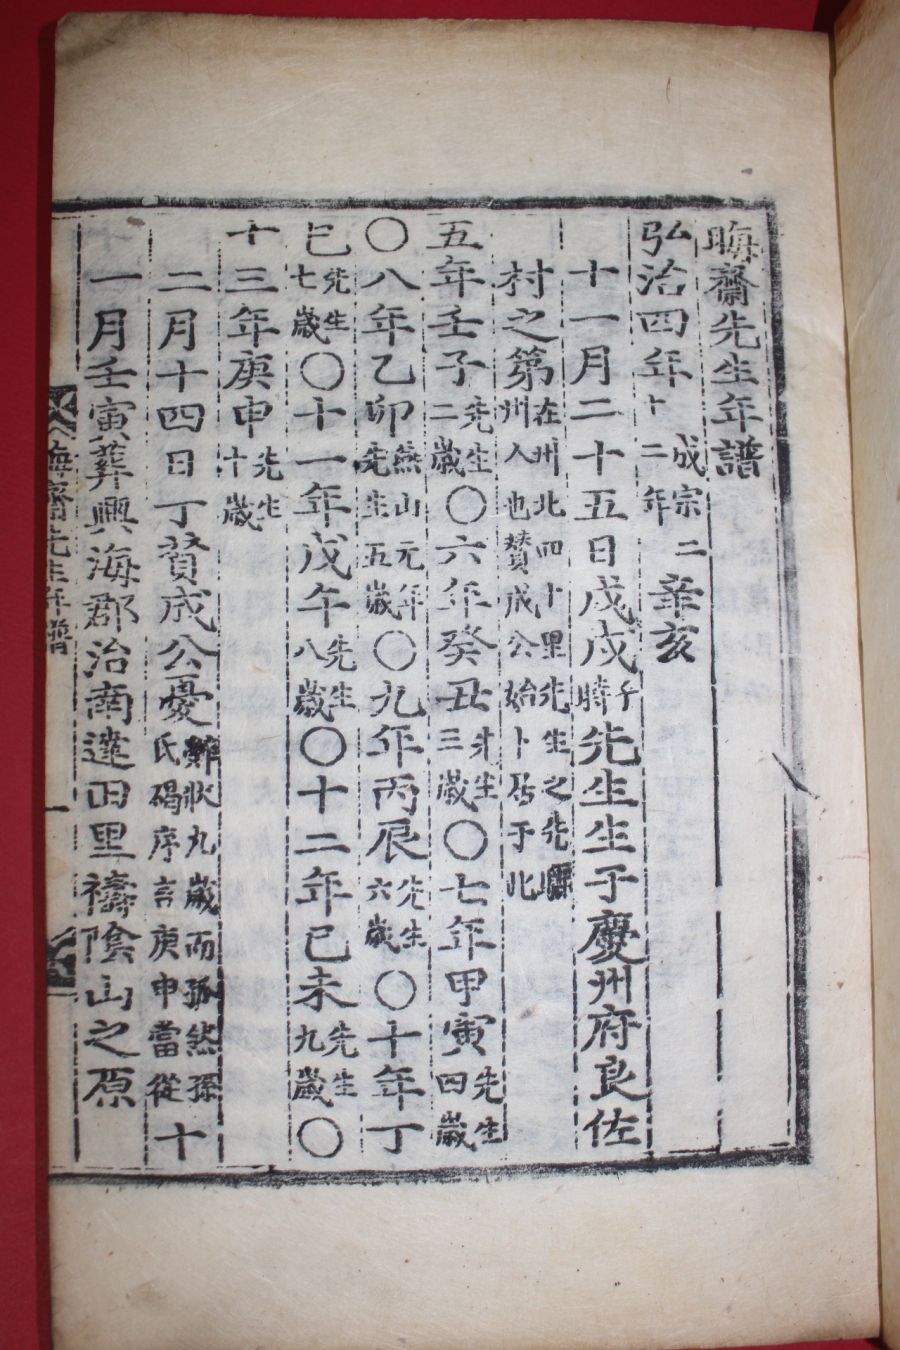 晦齋先生年譜
弘治四年成宗二十二年辛亥
十一月二十五日戊戌子時先生生于慶州府良佐
村之第在州北四十里先生之先驪州人也賛成公始卜居于此
五年壬子先生二歲○六年癸丑先生三歲○七年甲寅先生四歲
○八年乙卯燕山元年先生五歲○九年丙辰先生六歲○十年丁
巳先生七歲○十一年戊午先生八歲○十二年己未先生九歲○
十三年庚申先生十歲
二月十四日丁賛成公憂雖狀九歲而孤然孫氏碣序言庚申當從十
一月壬寅葬興海郡治南達田里禱陰山之原
晦齋先生年譜 一